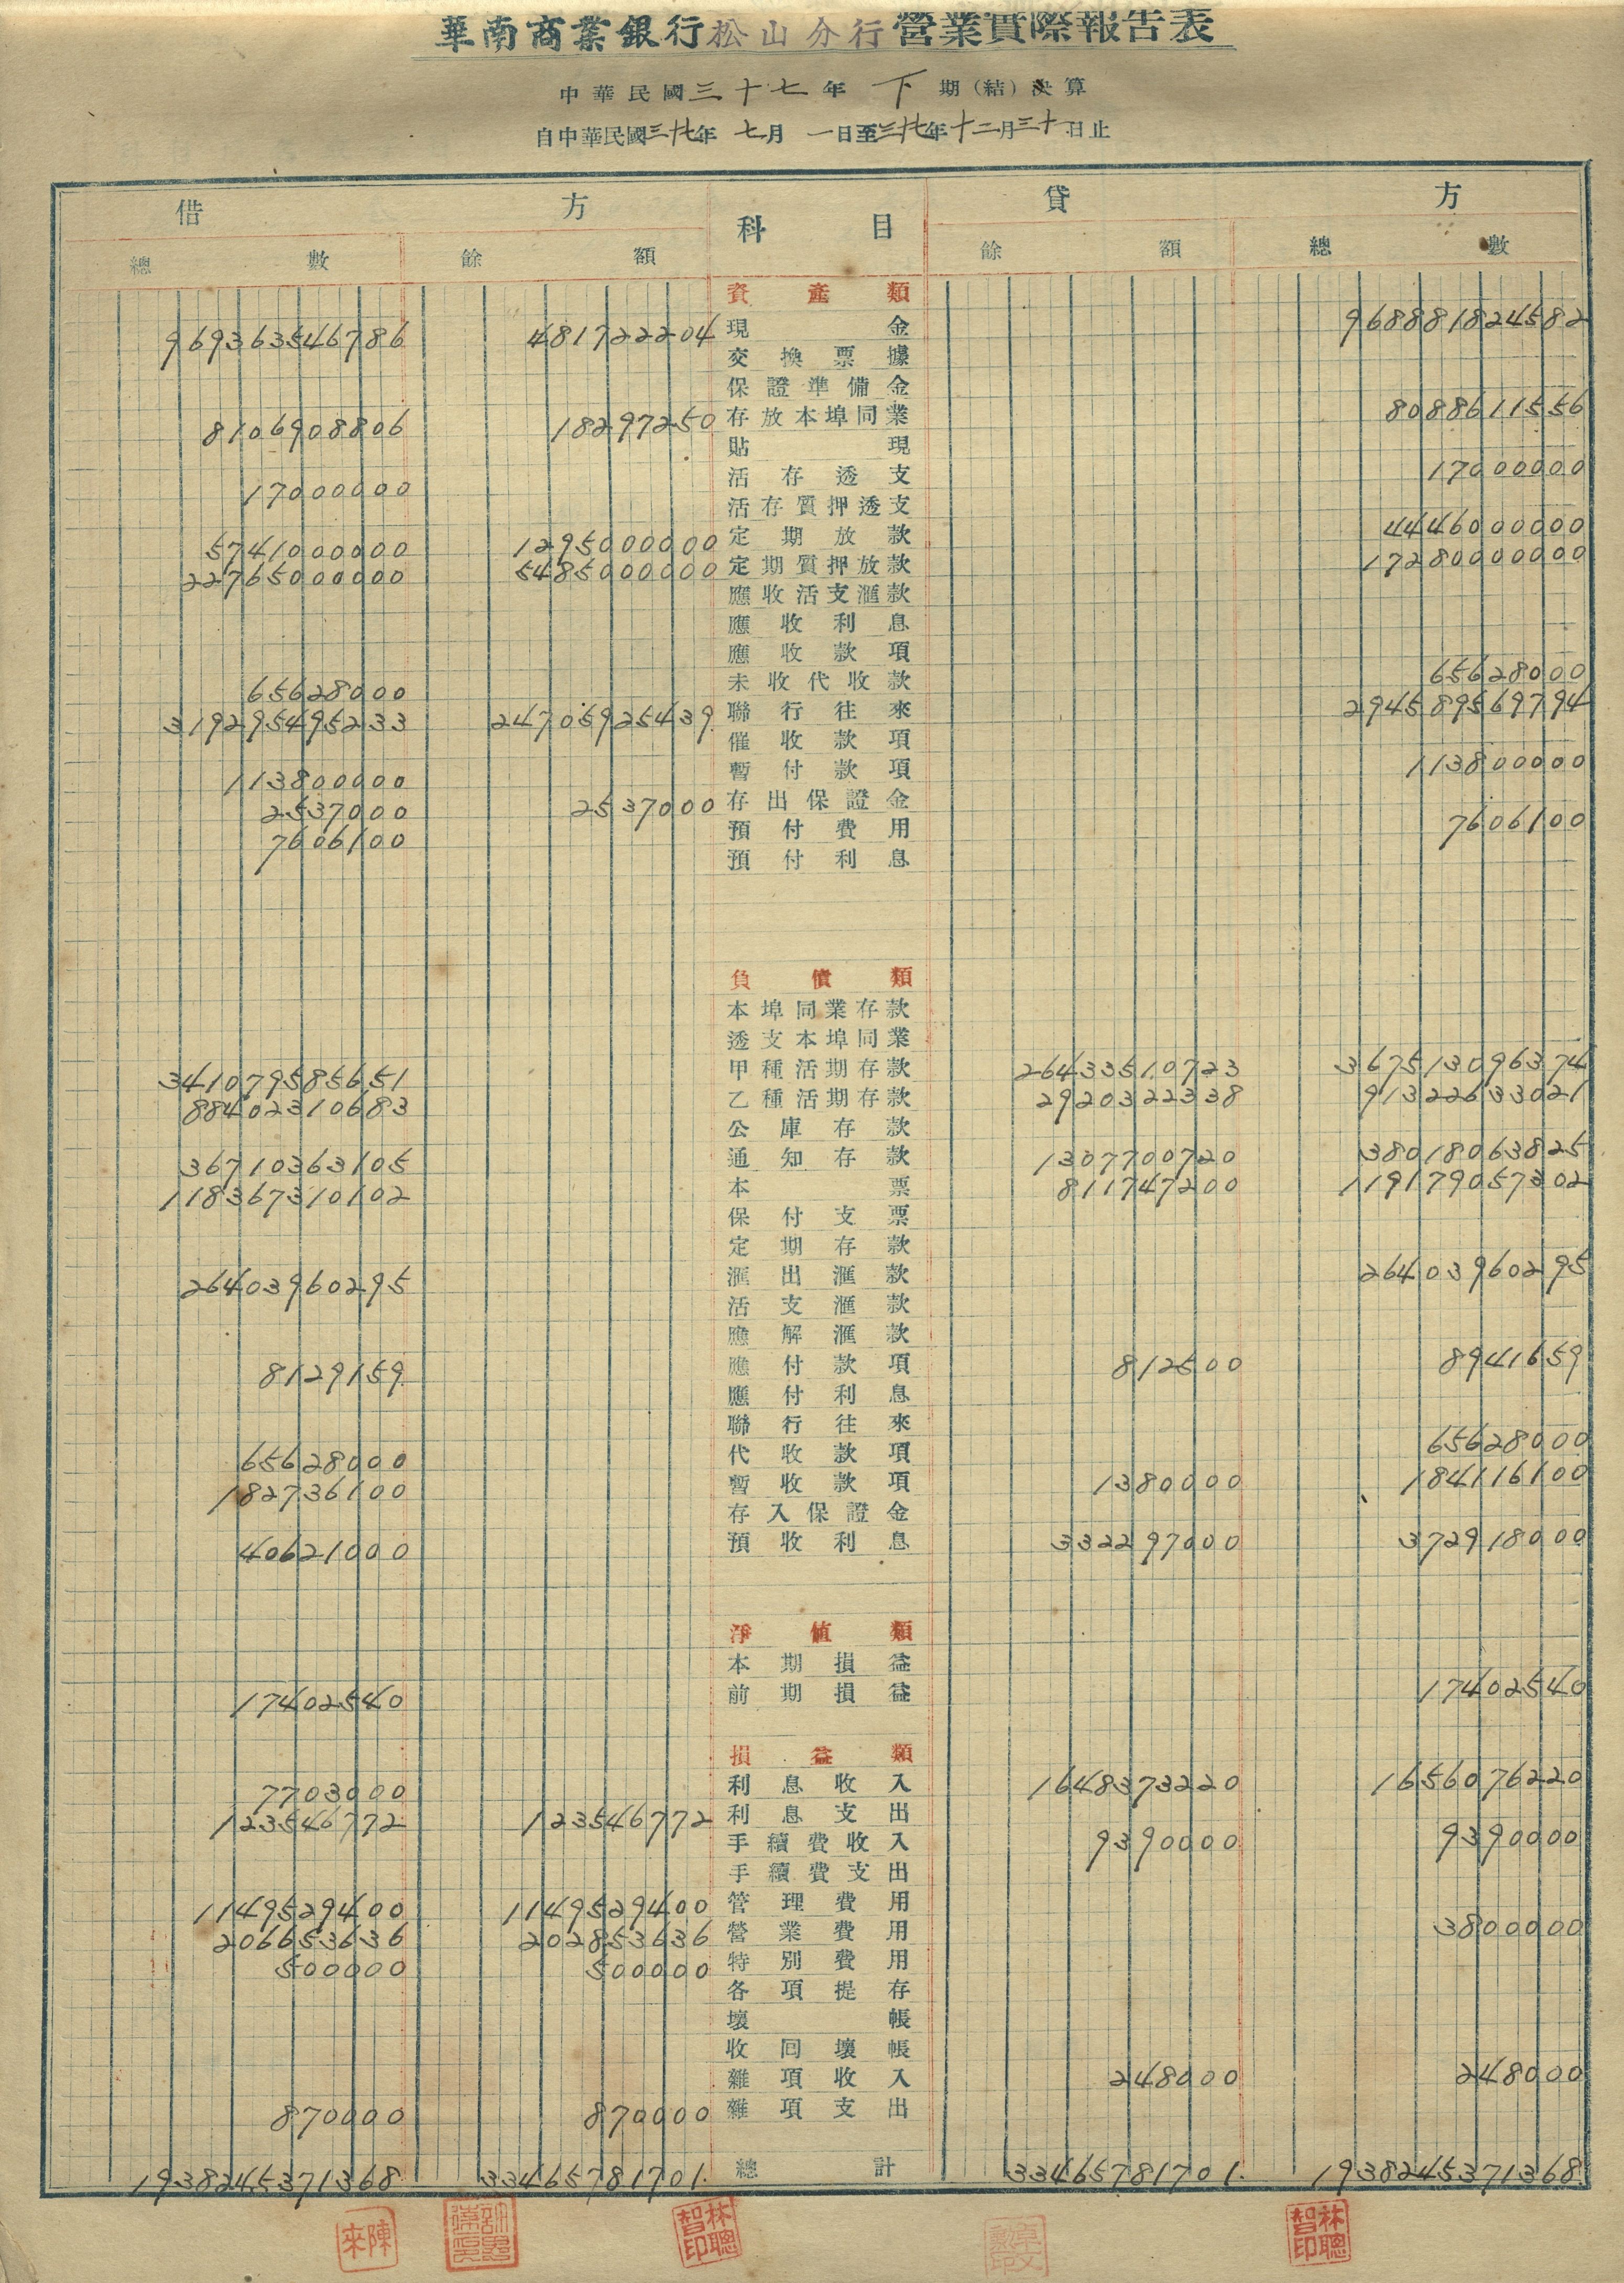 華南商業銀行松山分行營業實際報告表
中華民國三十七年 下 期(結)決算
自中華民國三十七年 七月 一日至三十七年十二月三十日止
借方 科目 貸方
總數 餘額 餘額 總數
資產類
969363546786 481722204 現金 968881824582
交換票據
保證準備金
8106908806 18297250 存放本埠同業 8088611556
貼現
17000000 活存透支 17000000
活存質押透支
5741000000 1295000000 定期放款 4446000000
22765000000 5485000000 定期質押放款 17280000000
應收活支滙款
應收利息
應收款項
65628000 未收代收款 65628000
319295495233 24705925439 聯行往來 294589569794
催收款項
113800000 暫付款項 113800000
2537000 2537000 存出保證金
7606100 預付費用 7606100
預付利息
負債類
本埠同業存款
透支本埠同業
341079585651 甲種活期存款 26433510723 367513096374
88402310683 乙種活期存款 2920322338 91322633021
公庫存款
36710363105 通知存款 1307700720 38018063825
118367310102 本票 811747200 119179057302
保付支票
定期存款
26403960295 滙出滙款 26403960295
活支滙款
應解滙款
8129159 應付款項 812500 8941659
應付利息
聯行往來
65628000 代收款項 65628000
182736100 暫收款項 1380000 184116100
存入保證金
40621000 預收利息 332297000 372918000
淨值類
本期損益
17402540 前期損益 17402540
損益類
7703000 利息收入 1648373220 1656076220
123546772 123546772 利息支出
手續費收入 9390000 9390000
手續費支出
1149529400 1149529400 管理費用
206653636 202853636 營業費用 3800000
500000 500000 特別費用
各項提存
壞帳
收回壞帳
雜項收入 248000 248000
870000 870000 雜項支出
1938245371368 33465781701 總計 33465781701 1938245371368
陳來
林聰智印
林聰智印